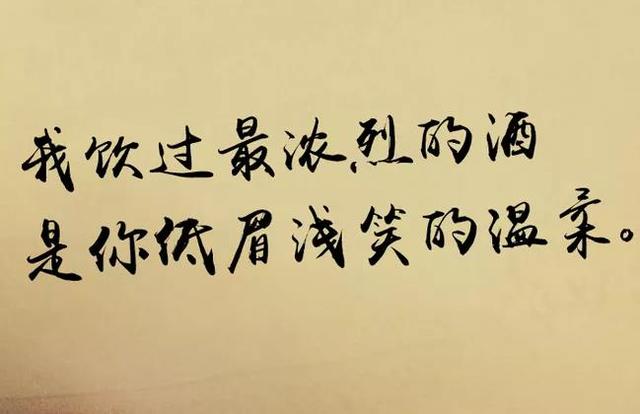 我饮过最浓烈的酒
是你低眉浅笑的温柔。